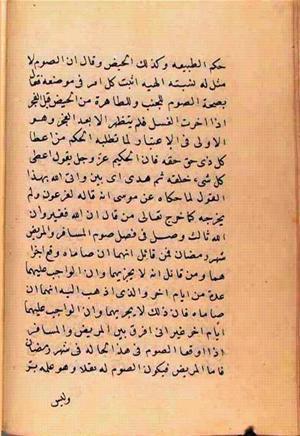 حكم الطبيعه وكذلك الحيض وقال ان الصوم لا
مثل له نسبته الهيه اثبت كل امر في موضعه فقال
بصحة الصوم للجنب وللطاهرة من الحيض قبل الفجر
اذا اخرت الغسل فلم تتطهر الا بعد الفجر وهو
الاولى في الاعتبار لما تطلبه الحكم من اعطا
كل ذي حق حقه فان الحكيم عز وجل يقول اعطى
كل شيء خلقه ثم هدى اي بين واثنى الله بهذا
القول لما حكاه عن موسى انه قاله لفرعون ولم
يجرحه كما جرح تعالى من قال ان الله فقير وان
الله ثالث وصل في فصل صوم المسافر والمريض
شهر رمضان فمن قائل انهما ان صاماه وقع اجزا
هما ومن قائل انه لا يجزيهما وان الواجب عليهما
عدة من ايام اخر والذي اذهب اليه انهما ان
صاماه فان ذلك لا يجزيهما وان الواجب عليهما
ايام اخر غير اني افرق بين المريض والمسافر
اذا اوقعا الصوم في هذه الحالة في شهر رمضان
فاما المريض فيكون الصوم له نفلا وهو عمل بر
وليس